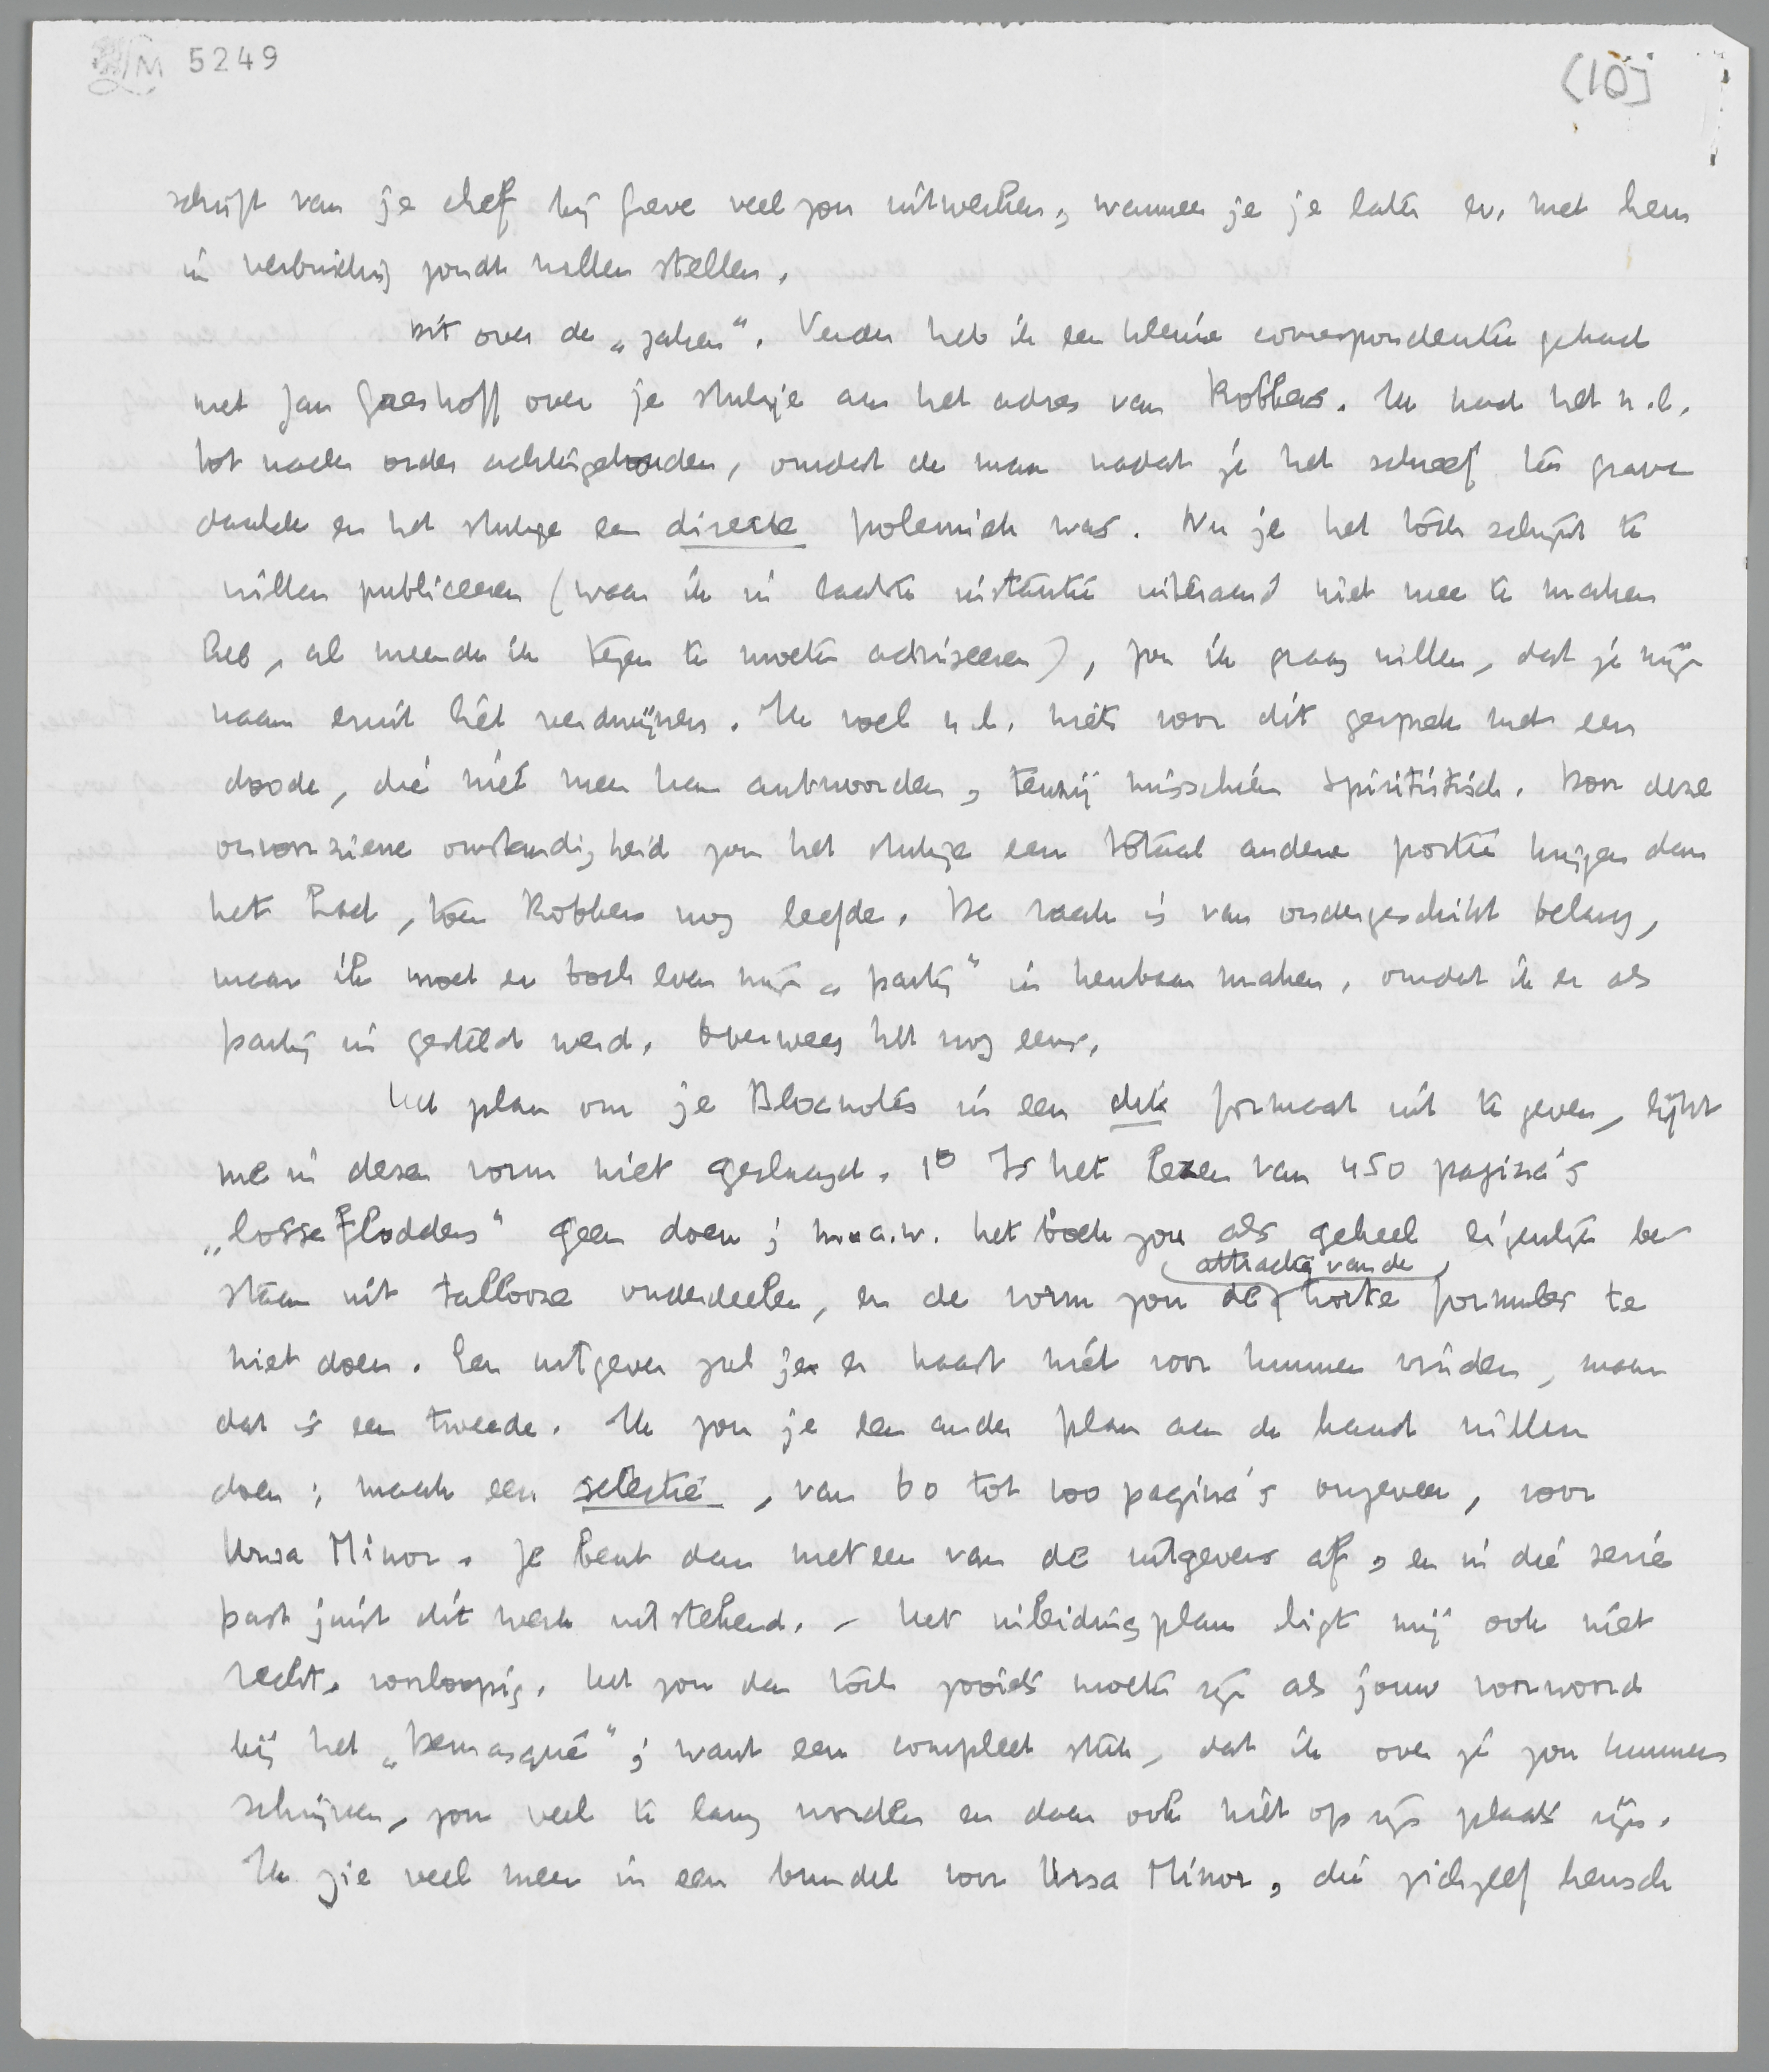 LM 5249
(10)
schrift van je chef bij Greve veel zou uitwerken, wanneer je je later ev. met hem
in verbinding zoudt willen stellen.
Dit over de „zaken". Verder heb ik een kleine correspondentie gehad
met Jan Greshoff over je stukje aan het adres van Robbers. Ik had het n.l.
tot nader order achtergehouden, omdat de man nadat je het schreef ten grave
daalde en het stukje een directe polemiek was. Nu je het tòch schijnt te
willen publiceeren (waar ik in laatste instantie uiteraard niet mee te maken
heb, al meende ik tegen te moeten adviseeren), zou ik graag willen, dat je mijn
naam eruit liet verdwijnen. Ik voel n.l. niets voor dit gesprek met een
doode, die niet meer kan antwoorden, tenzij misschien spiritistisch. Door deze
onvoorziene omstandigheid zou het stukje een totaal andere portée krijgen dan
het had, toen Robbers nog leefde. De zaak is van ondergeschikt belang,
maar ik moet er toch even mijn „partij" in kenbaar maken, omdat ik er als
partij in gesteld werd. Overweeg het nog eens.
Het plan om je Blocnotes in een dik formaat uit te geven, lijkt
me in dezen vorm niet geslaagd. 1° Is het lezen van 450 pagina's
„losse flodders" geen doen; m.a.w. het boek zou als geheel eigenlijk be-
staan uit tallooze onderdeelen, en de vorm zou de
attractie van de
korte formules te
niet doen. Een uitgever zul je er haast niét voor kunnen vinden, maar
dat is een tweede. Ik zou je een ander plan aan de hand willen
doen: maak een selectie, van 60 tot 100 pagina's ongeveer, voor
Ursa Minor. Je bent dan meteen van de uitgevers af, en in die serie
past juist dit werk uitstekend. – Het inleidingsplan ligt mij ook niet
recht, voorloopig. Het zou dan tòch zooiets moeten zijn als jouw voorwoord
bij het „Démasqué"; want een compleet stuk, dat ik over je zou kunnen
schrijven, zou veel te lang worden en dan ook niet op zijn plaats zijn.
Ik zie veel meer in een bundel voor Ursa Minor, die zichzelf heusch